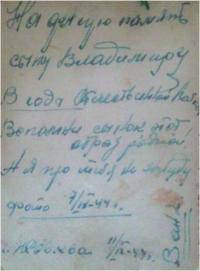 На долгую память
сыну Владимиру
В года Отечественной
Вспомни сынок этот
образ родной,
А я про тебя не забуду
фото 7/IV-44 г.
11/IV-44 г.